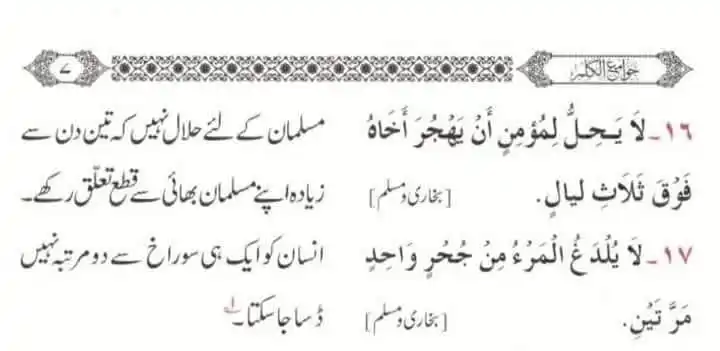 جوامع الکلم
۷
۱۶۔ لَا يَحِلُّ لِمُؤْمِنٍ أَنْ يَهْجُرَ أَخَاهُ
فَوْقَ ثَلَاثِ لیالٍ. [بخاری ومسلم]
مسلمان کے لئے حلال نہیں کہ تین دن سے
زیادہ اپنے مسلمان بھائی سے قطع تعلّق رکھے۔
۱۷۔ لَا يُلْدَغُ الْمَرْءُ مِنْ جُحْرٍ وَاحِدٍ
مَرَّتَيْنِ. [بخاری ومسلم]
انسان کو ایک ہی سوراخ سے دو مرتبہ نہیں
ڈسا جا سکتا۔ ؎۱